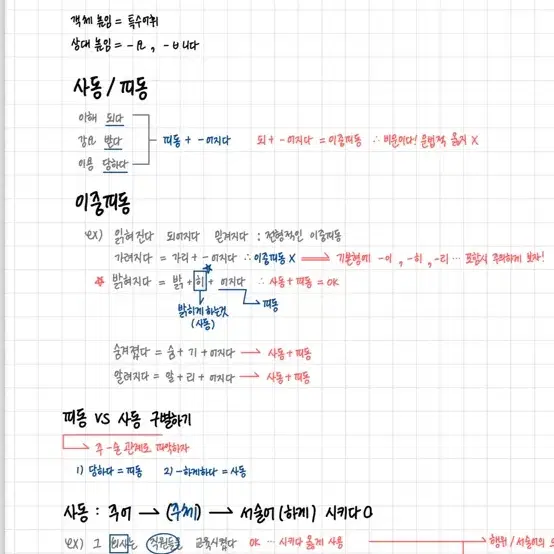 객체 높임 = 특수어휘
상대 높임 = -요, -ㅂ니다
사동 / 피동
이해 되다
강요 받다
이용 당하다
피동 + -어지다
되 + -어지다 = 이중피동 ∴ 비문이다! 문법적 옳지 X
이중피동
ex) 읽혀진다 되어지다 믿겨지다 : 전형적인 이중피동
가려지다 = 가리 + -어지다 ∴ 이중피동 X → 기본형에 -이, -히, -리 … 포함시 주의하게 보자!
* 밝혀지다 = 밝 + 히 + 어지다 ∴ 사동 + 피동 = OK
밝히게 하는것 (사동)
피동
숨겨졌다 = 숨 + 기 + 어지다 → 사동 + 피동
알려지다 = 알 + 리 + 어지다 → 사동 + 피동
피동 VS 사동 구별하기
주-술 관계로 파악하자
1) 당하다 = 피동 2) -하게하다 = 사동
사동 : 주어 → (주체) → 서술어 (하게) 시키다 O
ex) 그 회사는 직원들을 교육시켰다 OK … 시키다 옳게 사용 → 행위 / 서술어의